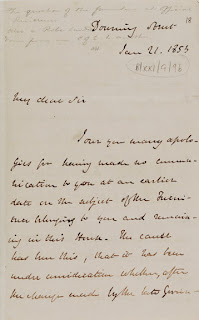 18
The question of the furniture at Official
Downing Street
Jan 21. 1853
MXXI/G/96
My dear Sir
I owe you many apolo-
gies for having made no commu-
nication to you at an earlier
date on the subject of the Furni-
ture belonging to you and remain-
ing in this House. The cause
has been this, that it has been
under consideration whether, after
the change made by the late Govern-